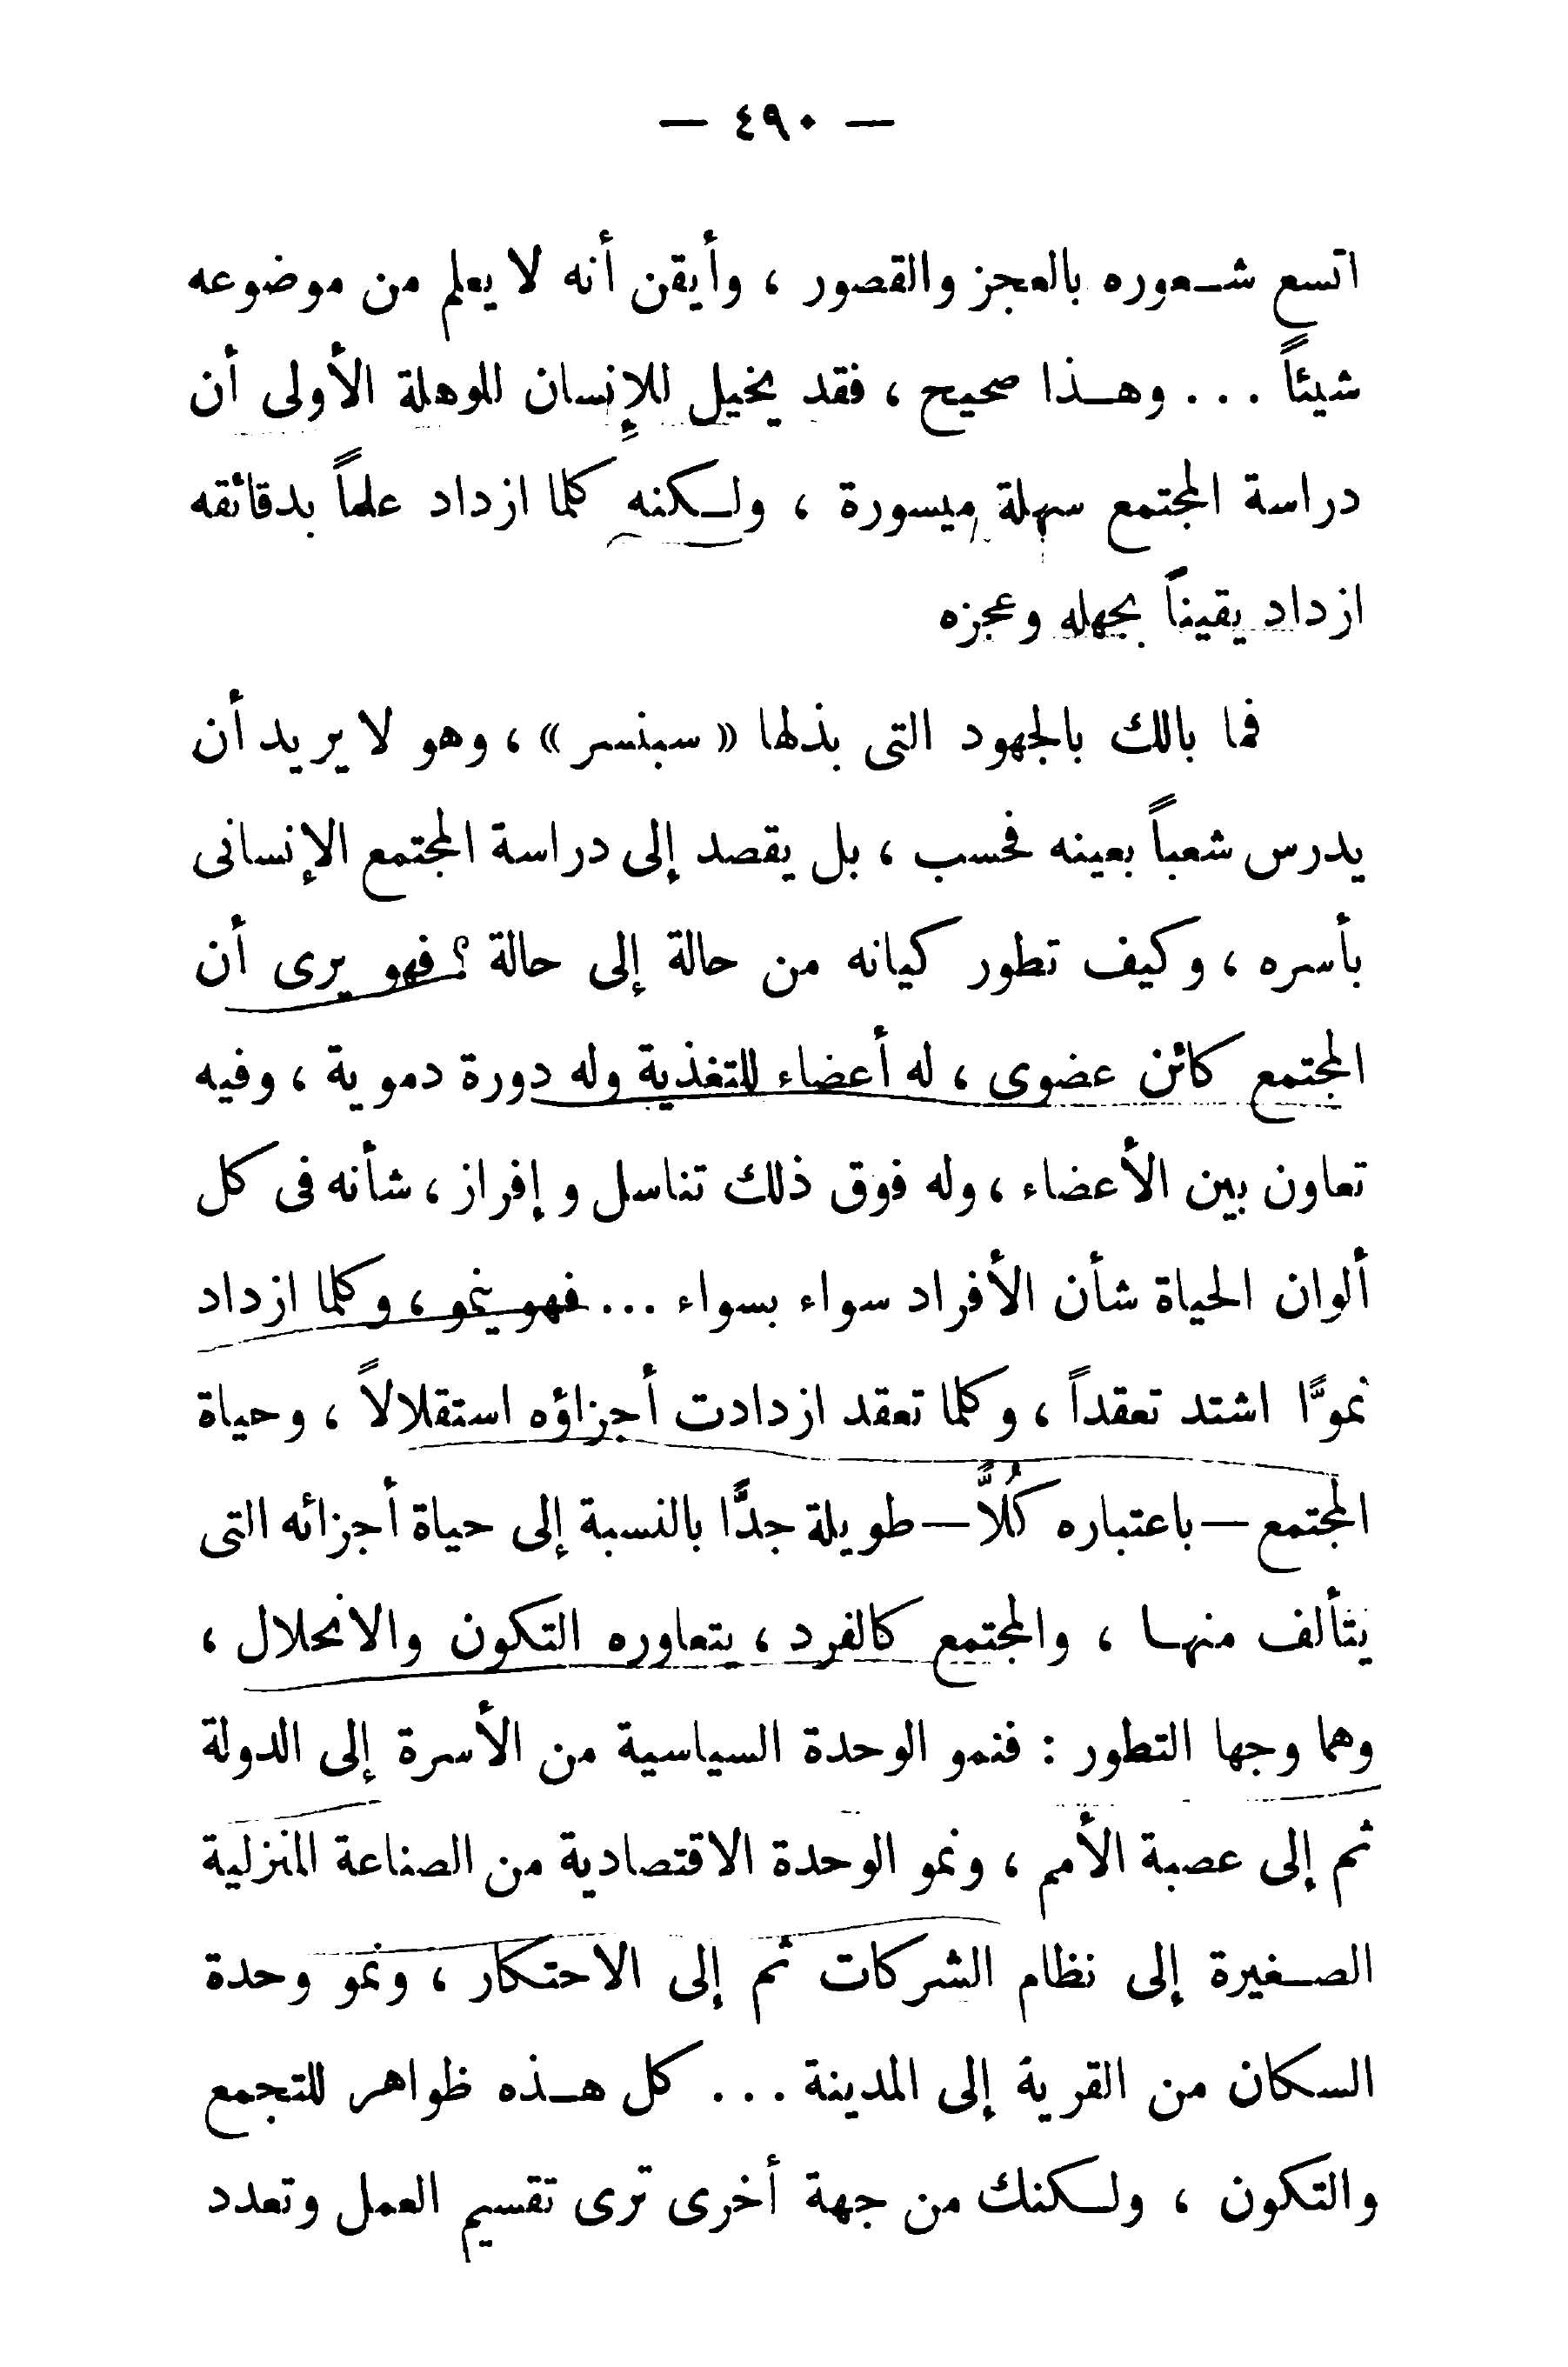 — ٤٩٠ —
اتسع شعوره بالعجز والقصور ، وأيقن أنه لا يعلم من موضوعه
شيئاً . . . وهذا صحيح ، فقد يخيل للإنسان للوهلة الأولى أن
دراسة المجتمع سهلة ميسورة ، ولكنه كلما ازداد علماً بدقائقه
ازداد يقيناً بجهله وعجزه
فما بالك بالجهود التى بذلها « سبنسر » ، وهو لا يريد أن
يدرس شعباً بعينه فحسب ، بل يقصد إلى دراسة المجتمع الإنسانى
بأسره ، وكيف تطور كيانه من حالة إلى حالة ؟ فهو يرى أن
المجتمع كائن عضوى ، له أعضاء للتغذية وله دورة دموية ، وفيه
تعاون بين الأعضاء ، وله فوق ذلك تناسل وإفراز ، شأنه فى كل
ألوان الحياة شأن الأفراد سواء بسواء ... فهو ينمو ، وكلما ازداد
نموًّا اشتد تعقداً ، وكلما تعقد ازدادت أجزاؤه استقلالاً ، وحياة
المجتمع — باعتباره كُلاًّ — طويلة جدًّا بالنسبة إلى حياة أجزائه التى
يتألف منها ، والمجتمع كالفرد ، يتعاوره التكون والانحلال ،
وهما وجها التطور : فنمو الوحدة السياسية من الأسرة إلى الدولة
ثم إلى عصبة الأمم ، ونمو الوحدة الاقتصادية من الصناعة المنزلية
الصغيرة إلى نظام الشركات ثم إلى الاحتكار ، ونمو وحدة
السكان من القرية إلى المدينة . . . كل هذه ظواهر للتجمع
والتكون ، ولكنك من جهة أخرى ترى تقسيم العمل وتعدد